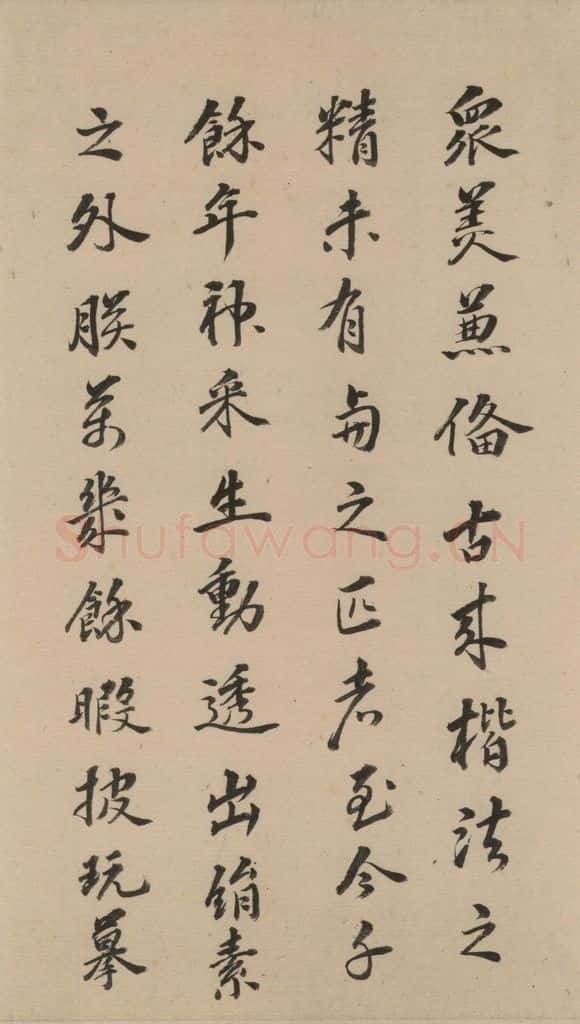 眾美兼備古來楷法之
精未有與之匹者至今千
餘年神采生動透出絹素
之外朕萬幾餘暇披玩摹
Shufawang.CN